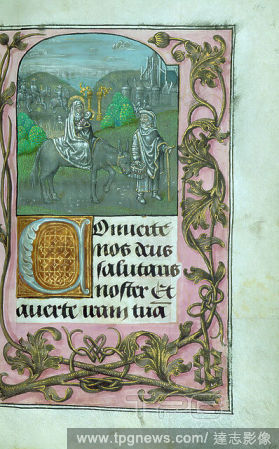 Conuerte
nos deus
salutaris
noster Et
auerte iram tuā
TPG
www.tpgnews.com/達志影像